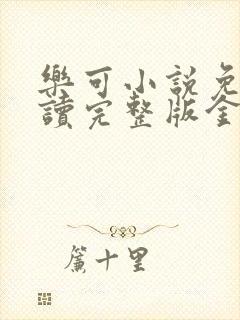 樂可小說免
讀完整版全
簾十里